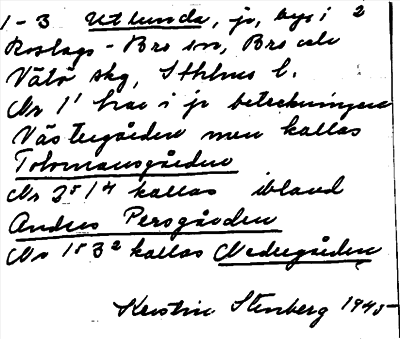 1-3 Utlunda, jr, by i 2
Roslags-Bro sn, Bro och
Vätö skg, Sthlms l.
Nr 1¹ har i jr beteckningen
Västergården men kallas
Tolvmansgården
Nr 2⁵/4 kallas ibland
Anders Persgården
Nr 1⁵ 3² kallas Nedregården
Kerstin Stenberg 1945